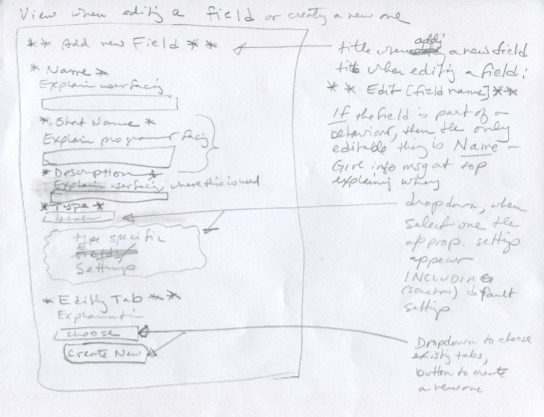 View when editing a field or creating a new one
** Add new Field **
* Name *
Explain user facing
* Short Name *
Explain programmer facing
* Description *
Explain user facing, where this is used
* Type *
type specific
fields
Settings
* Editing Tab **
Explanation
choose
Create New
title when adding a new field
title when editing a field:
** Edit [field name] **
If the field is part of a
behaviour, then the only
editable thing is Name -
Give info msg at top
explaining why
dropdown, when
select one the
approp. settings
appear
INCLUDING
(sometimes) default
settings
Dropdown to choose
existing tabs,
button to create
a new one